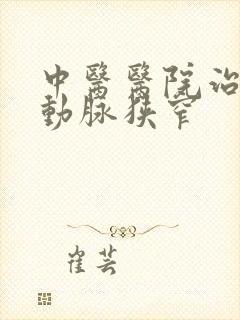 中醫醫院治
動脈狹窄
崔芸